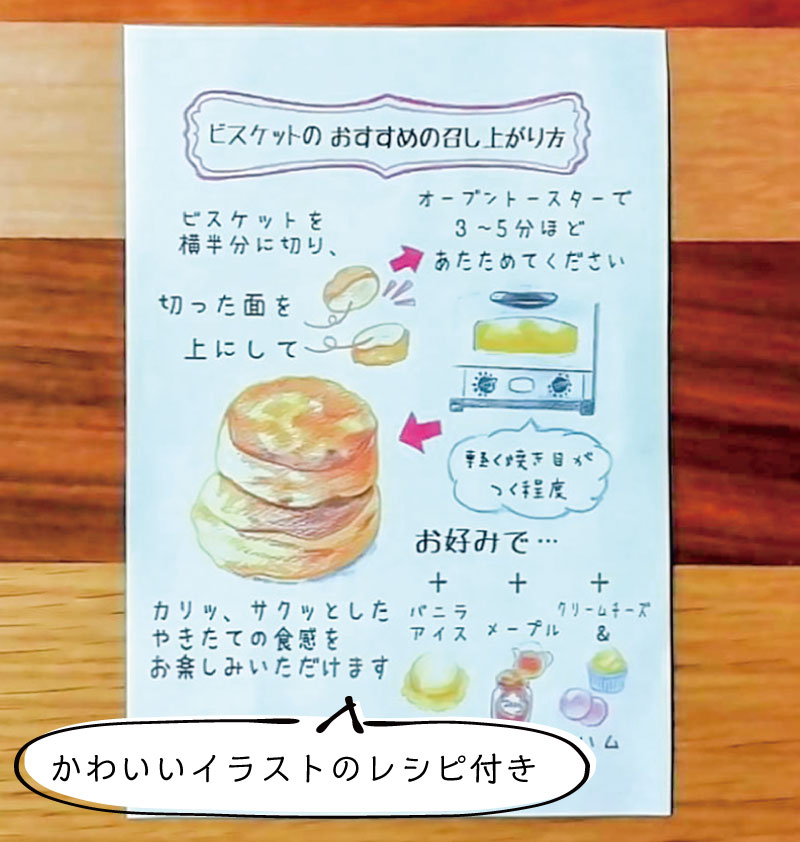 ビスケットの おすすめの召し上がり方
ビスケットを
横半分に切り、
切った面を
上にして
オーブントースターで
3~5分ほど
あたためてください
軽く焼き目が
つく程度
カリッ、サクッとした
やきたての食感を
お楽しみいただけます
お好みで…
+ + +
バニラ
アイス
メープル
クリームチーズ
&
ハム
かわいいイラストのレシピ付き